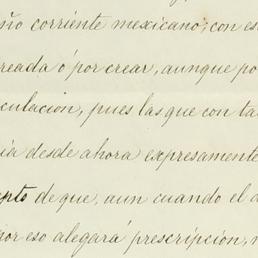 ño corriente mexicano; con es
reada ó por crear, aunque po
culacion, pues las que con ta
ia desde ahora expresamente
pto de que, aun cuando el d
por eso alegará prescripcion, n